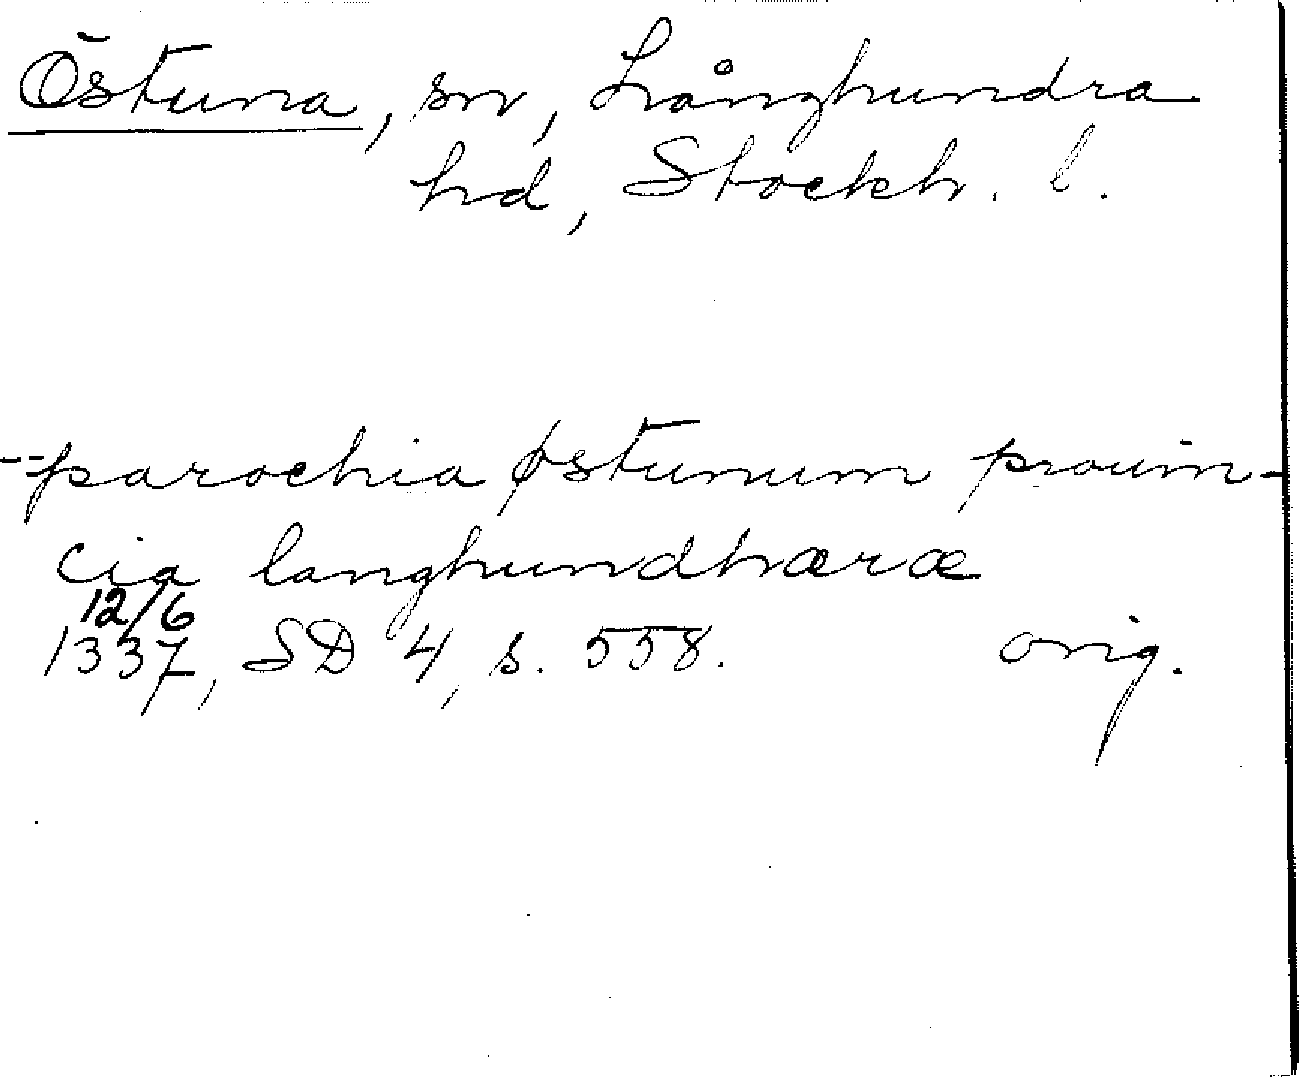 Östuna, sn, Långhundra
hd, Stockh. l.
-- parochia østunum prouin-
cia langhundhæræ
12/6
1337, SD 4, s. 558. orig.